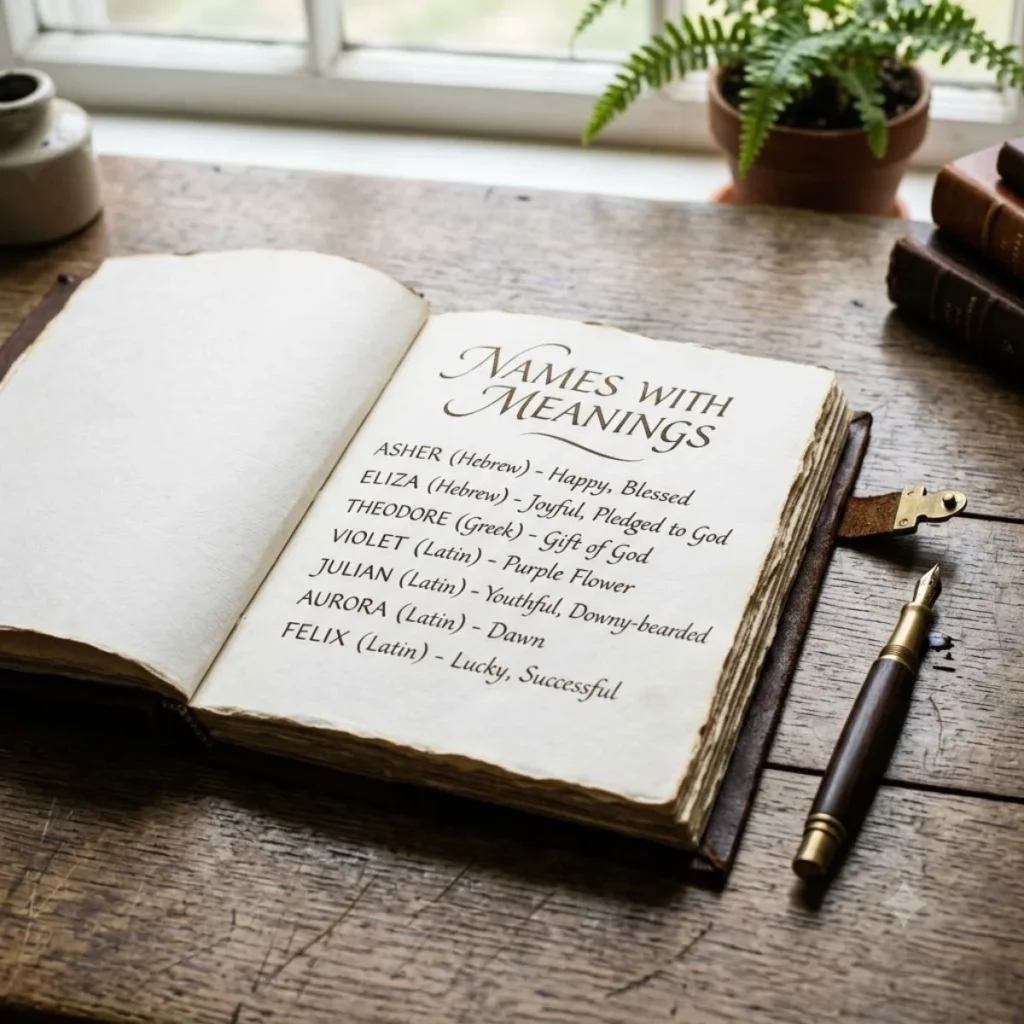 NAMES WITH
MEANINGS
ASHER (Hebrew) - Happy, Blessed
ELIZA (Hebrew) - Joyful, Pledged to God
THEODORE (Greek) - Gift of God
VIOLET (Latin) - Purple Flower
JULIAN (Latin) - Youthful, Downy-bearded
AURORA (Latin) - Dawn
FELIX (Latin) - Lucky, Successful